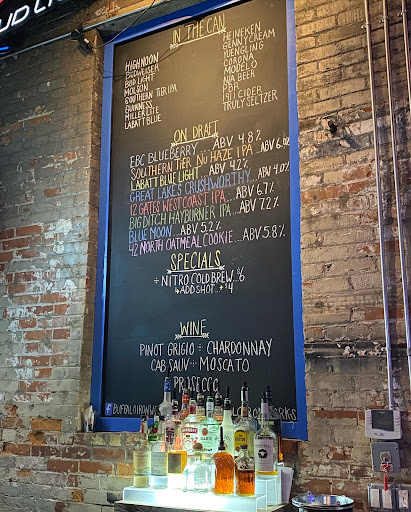 UD LIGHT
IN THE CAN
HIGH NOON
BUDWEISER
BUD LIGHT
MOLSON
SOUTHERN TIER IPA
GUINNESS
MILLER LITE
LABATT BLUE
HEINEKEN
GENNY CREAM
YUENGLING
CORONA
MODELO
N/A BEER
PBR
1911 CIDER
TRULY SELTZER
ON DRAFT
EBC BLUEBERRY... ABV 4.8%
SOUTHERN TIER NU HAZE IPA...ABV 6.0%
LABATT BLUE LIGHT... ABV 4.2%
GREAT LAKES CRUSHWORTHY...ABV 4.0%
12 GATES WEST COAST IPA... ABV 6.7%
BIG DITCH HAYBURNER IPA...ABV 7.2%
BLUE MOON... ABV 5.2%
42 NORTH OATMEAL COOKIE...ABV 5.8%
SPECIALS
NITRO COLD BREW..$6
ADD SHOT..+$4
WINE
PINOT GRIGIO CHARDONNAY
CAB SAUV MOSCATO
PROSECCO
f BUFFALOIRONW